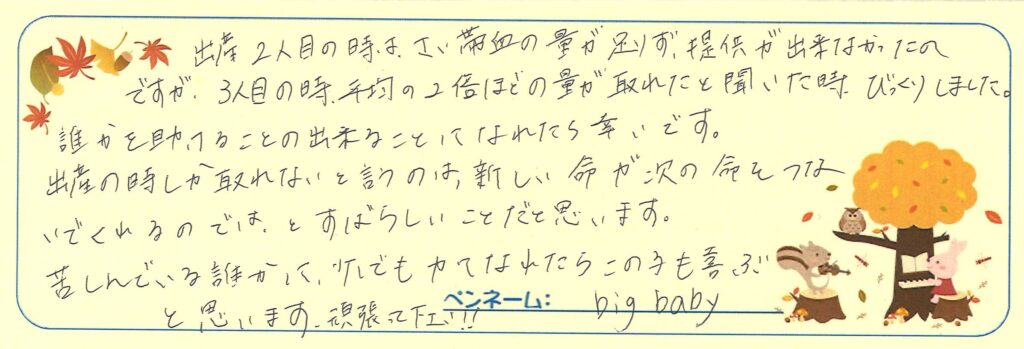 出産2人目の時は、さい帯血の量が足りず、提供が出来なかったの
ですが、3人目の時、平均の2倍ほどの量が取れたと聞いた時、びっくりしました。
誰かを助けることの出来ることになれたら幸いです。
出産の時しか取れないと言うのは、新しい命が次の命をつな
いでくれるのでは、とすばらしいことだと思います。
苦しんでいる誰かに、少しでも力になれたらこの子も喜ぶ
と思います。頑張って下さい!!
ペンネーム: big baby